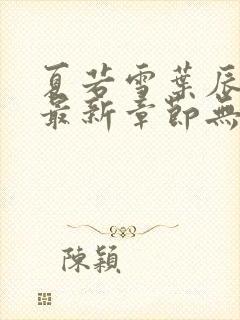 夏若雪葉辰
最新章節無
陳穎